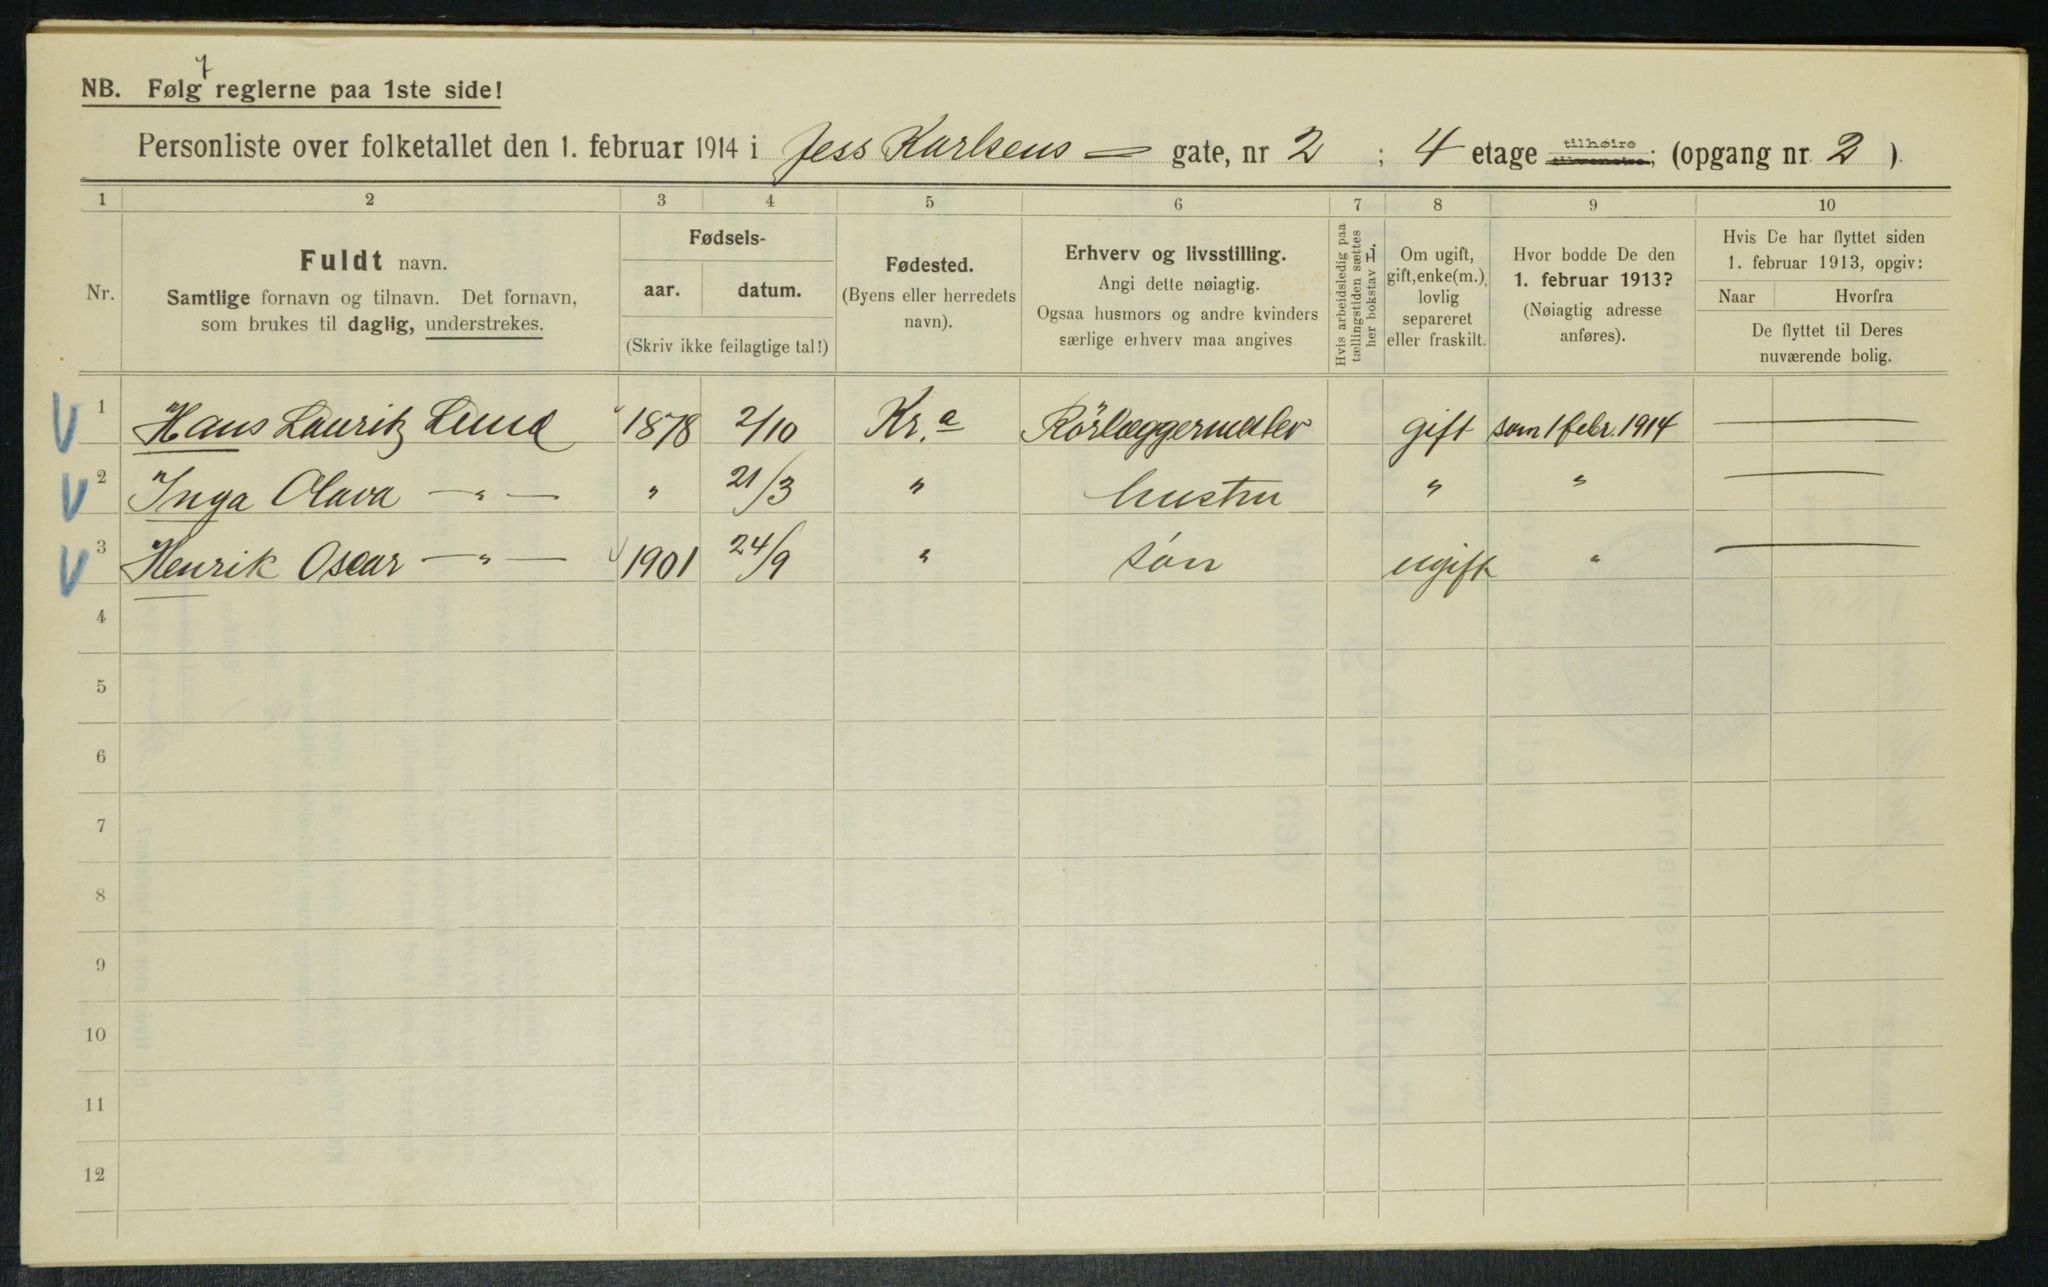 7
NB. Følg reglerne paa 1ste side!
Personliste over folketallet den 1. februar 1914 i Jess Karlsens — gate, nr 2 ; 4 etage tilhøire tilvenstre; (opgang nr. 2 ).
1 2 3 4 5 6 7 8 9 10
Nr.
Fuldt navn.
Samtlige fornavn og tilnavn. Det fornavn,
som brukes til daglig, understrekes.
Fødsels-
aar. datum.
(Skriv ikke feilagtige tal!)
Fødested.
(Byens eller herredets
navn).
Erhverv og livsstilling.
Angi dette nøiagtig.
Ogsaa husmors og andre kvinders
særlige erhverv maa angives
Hvis arbeidsledig paa
tællingstiden sættes
her bokstav L.
Om ugift,
gift, enke(m.),
lovlig
separeret
eller fraskilt.
Hvor bodde De den
1. februar 1913?
(Nøiagtig adresse
anføres).
Hvis De har flyttet siden
1. februar 1913, opgiv:
Naar Hvorfra
De flyttet til Deres
nuværende bolig.
V 1 Hans Lauritz Lund 1878 2/10 Kr.a Rörlæggermester gift som 1 febr. 1914 —
V 2 Inga Olava — " — " 21/3 " hustru " " —
V 3 Henrik Oscar — " — 1901 24/9 " søn ugift " —
4
5
6
7
8
9
10
11
12